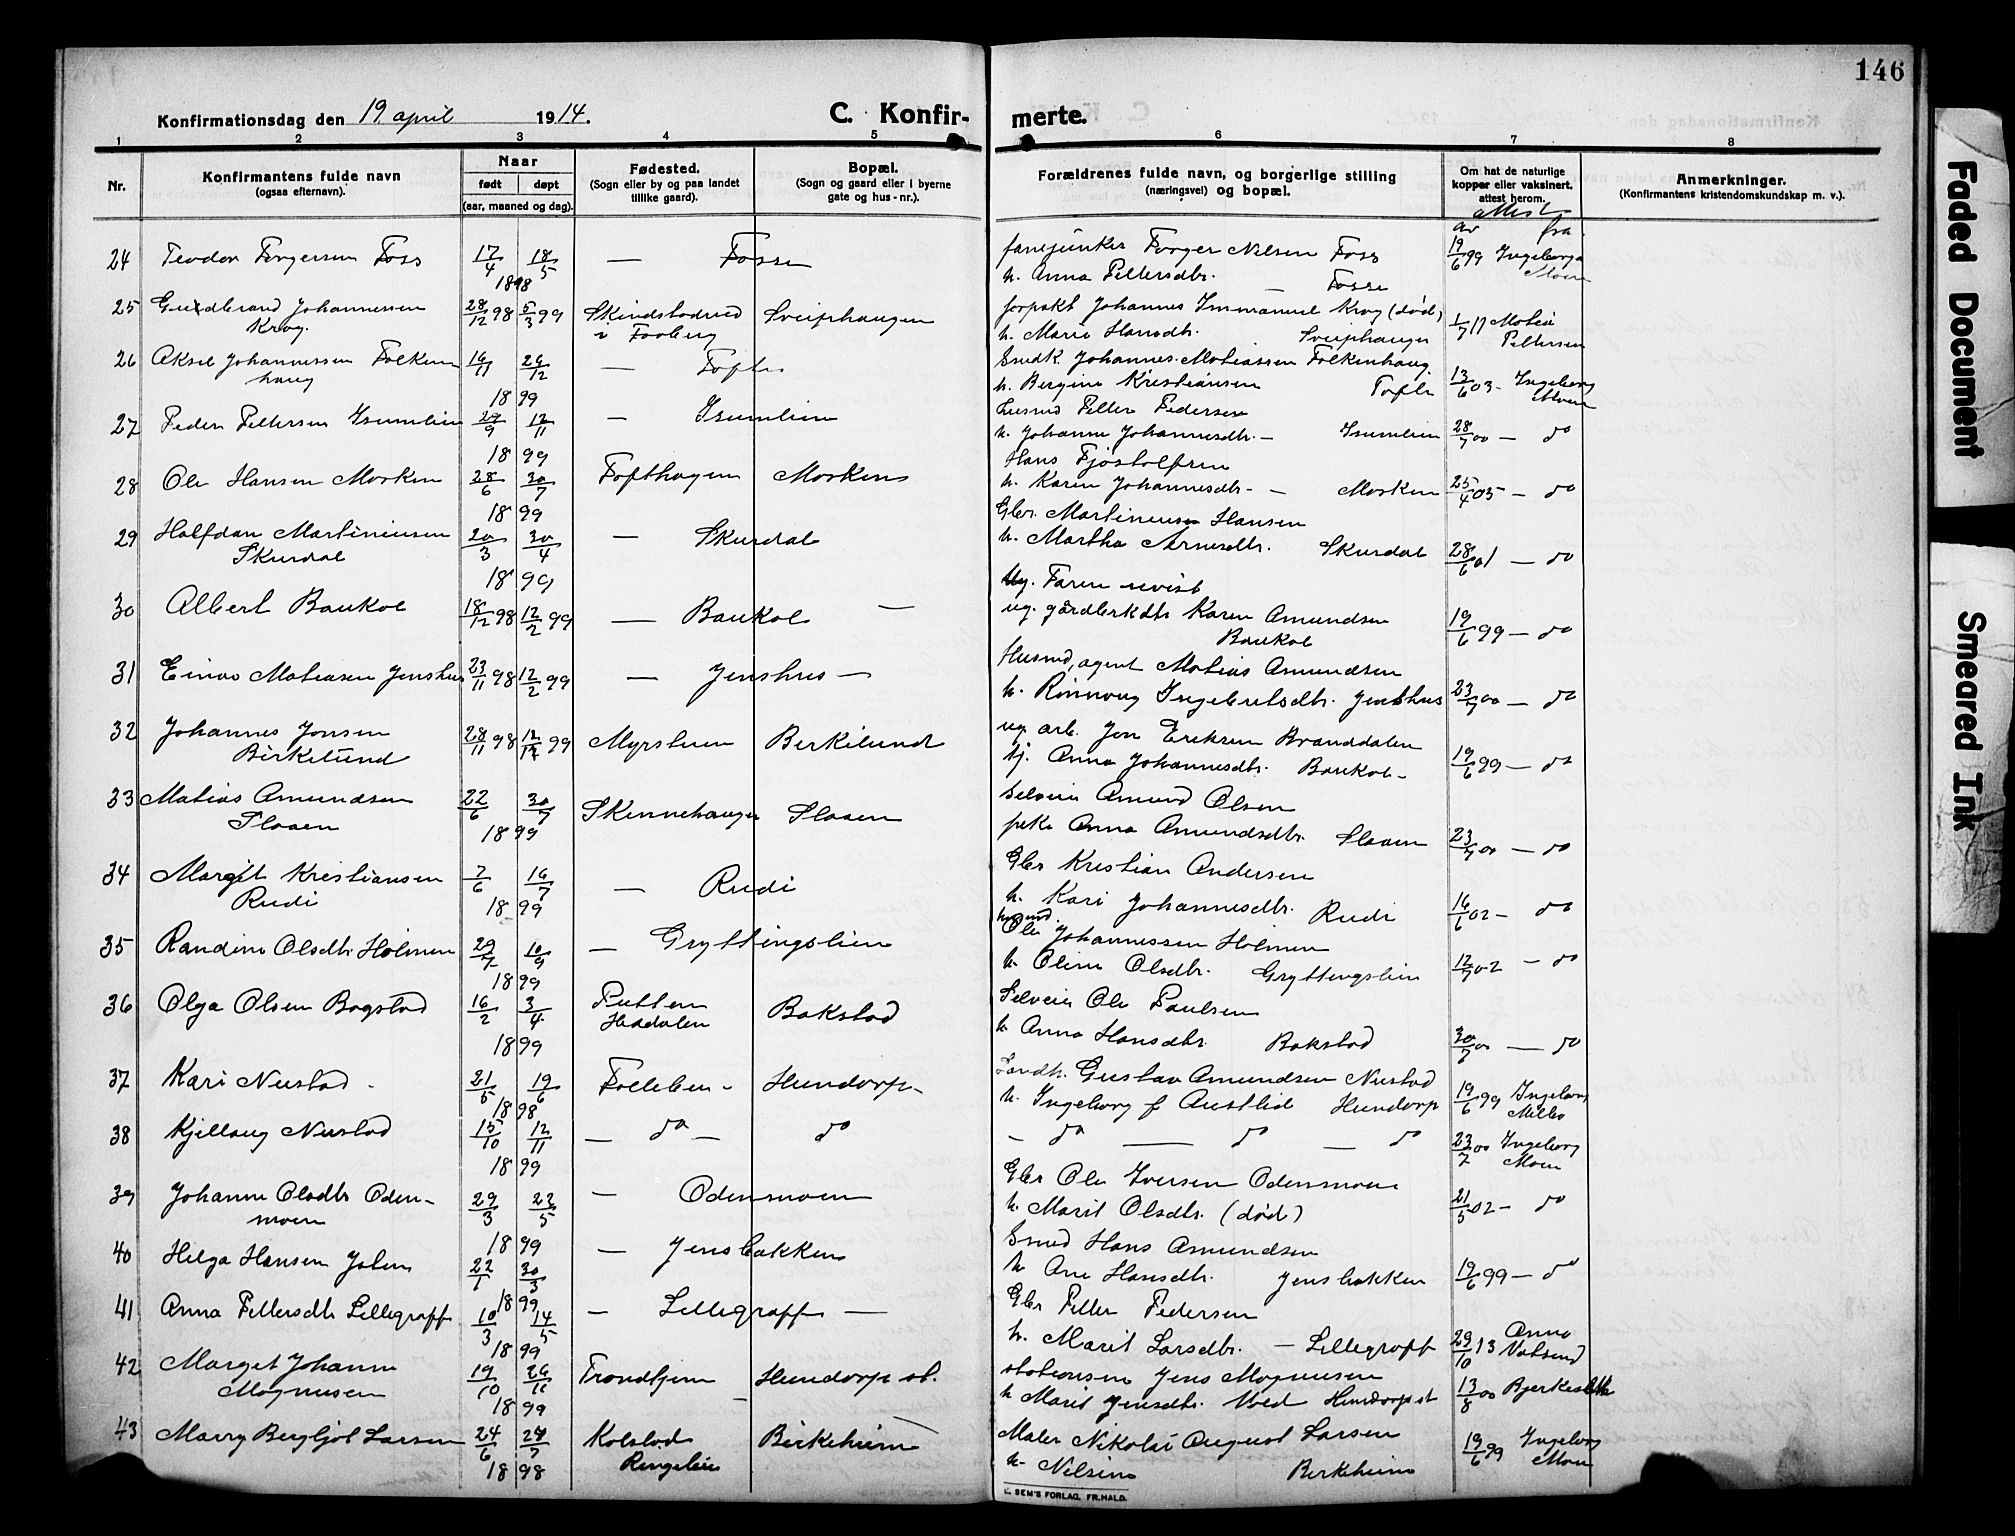 146
Konfirmationsdag den 19. april 1914.
C. Konfir-
merte.
1 2 3 4 5 6 7 8
Nr.
Konfirmantens fulde navn
(ogsaa efternavn).
Naar
født døpt
(aar, maaned og dag).
Fødested.
(Sogn eller by og paa landet
tillike gaard).
Bopæl.
(Sogn og gaard eller i byerne
gate og hus-nr.).
Forældrenes fulde navn, og borgerlige stilling
(næringsvei) og bopæl.
Om hat de naturlige
kopper eller vaksinert,
attest herom.
Anmerkninger.
(Konfirmantens kristendomskundskap m. v.).
attest
av fra
24 Teodor Torgersen Foss 17/4 18/5 — Fosse
1898
fanejunker Torger Nilsen Foss
h. Anna Pettersdtr. — Fosse
19/6 99 Ingeborg
Moen
25 Guldbrand Johannessen 28/12 98 5/3 99
Krog.
i Faaberg
Sveiphaugen
forpakt Johannes Immanuel Krog (død)
h. Marie Hansdtr. Sveiphaugen
Pettersen
26 Aksel Johannessen Falken
haug 16/11 26/12 — Tofte
1899
Snedk. Johannes Matiassen Falkenhaug.
h. Bergine Kristiansen Tofte
13/6 03 - Ingeborg
Moen
27 Peder Pettersen Isumlien 29/9 12/11 — Isumlien
1899
Petter Pedersen
h. Johanne Johannesdtr. — Isumlien
28/7 00 — do
28 Ole Hansen Morken 28/6 30/7 Tofthagen Morken
1899
Hans Fjøstolfsen
h. Karen Johannesdtr. — Morken
25/4 05 — do
29 Halfdan Martiniusen
Skurdal 20/3 30/4 — Skurdal
1899
Gbr. Martinius Hansen
h. Martha Arnesdtr. Skurdal
28/6 01 — do
30 Albert Baukol 18/12 98 12/2 99 — Baukol —
Faren uvist
ug. gårdbrkdtr Karen Amundsen
Baukol
19/6 99 — do
31 Einar Matiasen Jenshus 23/11 98 12/2 99 — Jenshus —
Husmd, agent Matias Amundsen
h. Rønnaug Ingebretsdtr. Jenshus
23/7 00 — do
32 Johannes Jonsen
Birkelund 28/11 98 99 Birkelund
ug. arb. Jon Eriksen Branddalen
Anna Johannesdtr. Baukol -
19/6 99 — do
33 Matias Amundsen
Slaaen 22/6 30/7 Skennehaugen Slaaen
1899
Selveier Amund Olsen
Anna Amundsdtr. Slaaen
23/7 00 — do
34 Margit Kristiansen
Rudi 7/6 16/7 — Rudi
1899
Gbr Kristian Andersen
h. Kari Johannesdtr. Rudi
16/6 02 - do
35 Randine Olsdtr. Holmen 29/7 10/9 — Gryttingslien
1899
husmd.
Ole Johannessen Holmen
h. Oline Olsdtr. Gryttingslien
12/7 02 - do
36 Olga Olsen Bagstad 16/2 3/4 Putten
Heddalen
Bakstad
1899
Selveier Ole Paulsen
h. Anna Hansdtr. Bakstad
30/7 00 — do
37 Kari Nustad 21/5 19/6 Follebu - Hundorp -
1898
Landh. Gustav Amundsen Nustad
h. Ingeborg f. Austlid Hundorp
19/6 99 Ingeborg
38 Kjellaug Nustad 15/10 12/11 — do — do
1899
— do — do — do
23/7 00 Ingeborg
Moen
39 Johanne Olsdtr Oden-
moen 29/3 22/5 — Odensmoen
1899
Gbr Ole Iversen Odensmoen
h. Marit Olsdtr. (død)
21/5 02 - do
40 Helga Hansen 22/1 30/3 — Jensbakken
1899
Smed Hans Amundsen
h. Ane Hansdtr. Jensbakken
19/6 99 — do
41 Anna Pettersdtr Lillegraff 10/3 14/5 — Lillegraff —
1899
Gbr Petter Pedersen
h. Marit Larsdtr. — Lillegraff
29/10 13 Anna
42 Marget Johanne
Magnusen 19/10 26/11 Trondhjem Hundorp st.
1899
Jens Magnusen
h. Marit Jensdtr. Hundorp st
13/8 00
43 Marry Bergljot Larsen 24/6 Kolstad
Ringebu
Birkeheim
1898
Maler Nikolai August Larsen
h. Nilsine Birkeheim
19/6 99 Ingeborg
Moen
SEM'S FORLAG, FR.HALD.
Faded Document
Smeared Ink